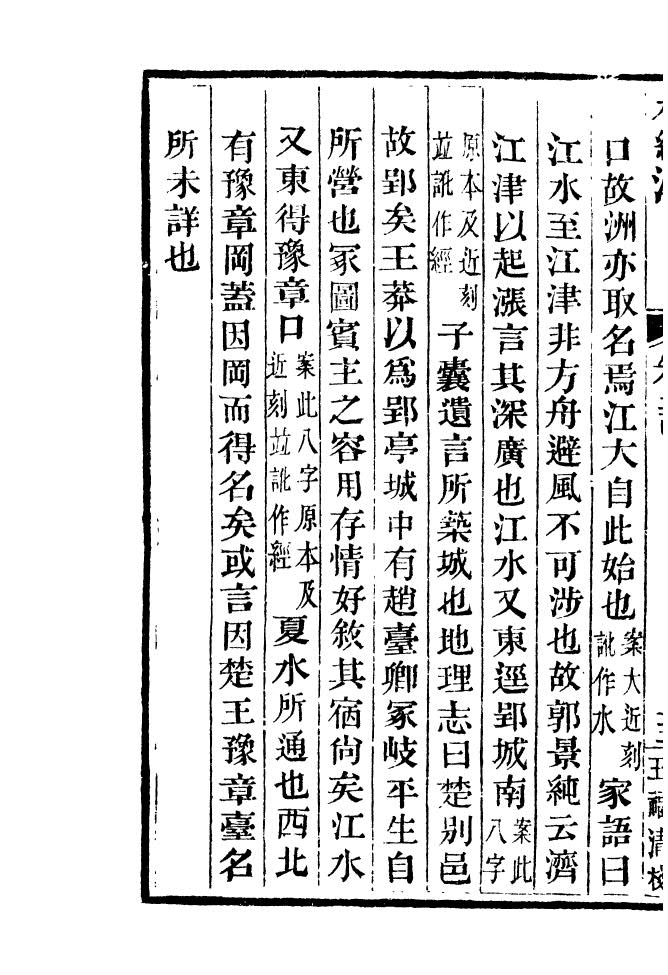 口故洲亦取名焉江大自此始也案大近刻訛作水家語曰
江水至江津非方舟避風不可涉也故郭景純云濟
江津以起漲言其深廣也江水又東逕郢城南案此八字
原本及近刻並訛作經子囊遺言所築城也地理志曰楚别邑
故郢矣王莽以爲郢亭城中有趙臺卿冢岐平生自
所營也冢圖賓主之容用存情好敘其宿尙矣江水
又東得豫章口案此八字原本及近刻並訛作經夏水所通也西北
有豫章岡蓋因岡而得名矣或言因楚王豫章臺名
所未詳也